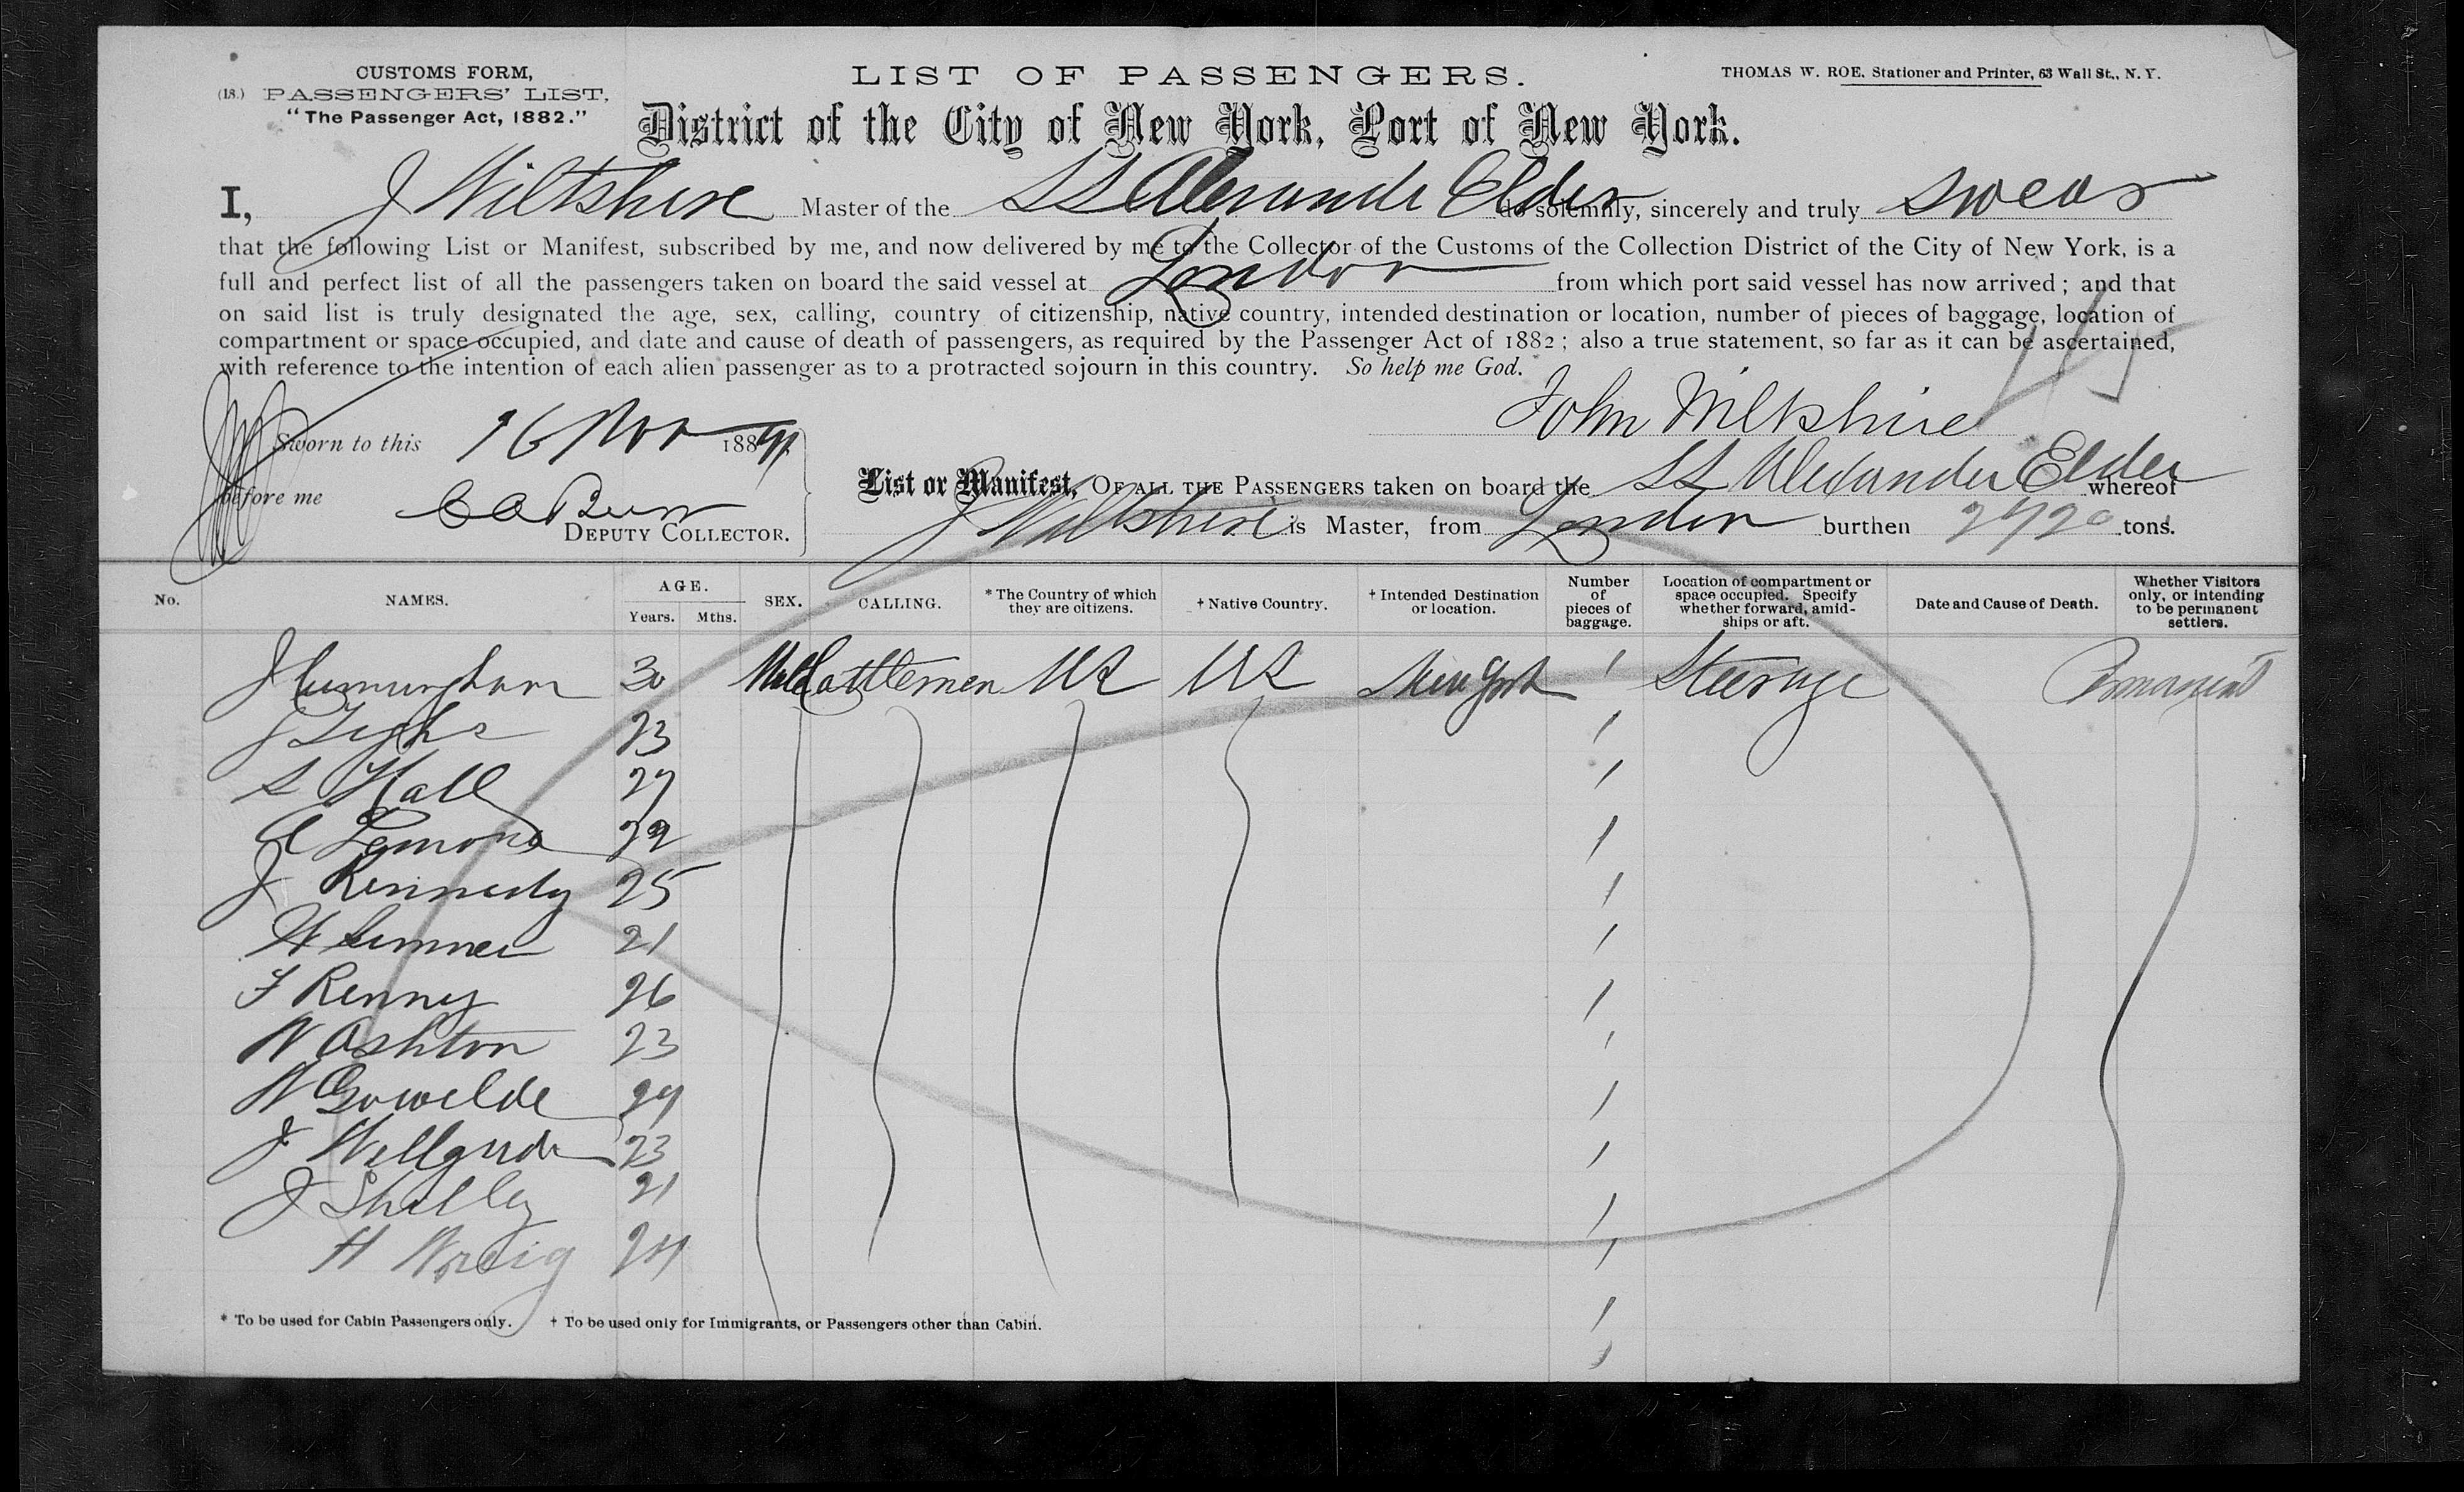 CUSTOMS FORM,
(18.) PASSENGERS' LIST,
"The Passenger Act, 1882."
LIST OF PASSENGERS.
THOMAS W. ROE, Stationer and Printer, 63 Wall St., N. Y.
District of the City of New York, Port of New York.
I, J Wiltshire Master of the SS Alexander Elder do solemnly, sincerely and truly swear
that the following List or Manifest, subscribed by me, and now delivered by me to the Collector of the Customs of the Collection District of the City of New York, is a
full and perfect list of all the passengers taken on board the said vessel at London from which port said vessel has now arrived; and that
on said list is truly designated the age, sex, calling, country of citizenship, native country, intended destination or location, number of pieces of baggage, location of
compartment or space occupied, and date and cause of death of passengers, as required by the Passenger Act of 1882; also a true statement, so far as it can be ascertained,
with reference to the intention of each alien passenger as to a protracted sojourn in this country. So help me God.
John Wiltshire
Sworn to this 16 Nov 188
before me
DEPUTY COLLECTOR.
List or Manifest, OF ALL THE PASSENGERS taken on board the SS Alexander Elder whereof
J Wiltshire is Master, from London burthen 2720 tons.
No. NAMES. AGE. Years. Mths. SEX. CALLING. * The Country of which they are citizens. † Native Country. † Intended Destination or location. Number of pieces of baggage. Location of compartment or space occupied. Specify whether forward, amid-ships or aft. Date and Cause of Death. Whether Visitors only, or intending to be permanent settlers.
J Cunningham 30 Male Cattlemen US US New York 1 Steerage Permanent
J Tighe 23 1
S Hall 27 1
Lemons 22 1
J Kennedy 25 1
H Sumner 21 1
F Renny 26 1
W Ashton 23 1
W 24 1
J 23 1
J Shelley 21 1
H 24 1
1
1
* To be used for Cabin Passengers only. † To be used only for Immigrants, or Passengers other than Cabin.